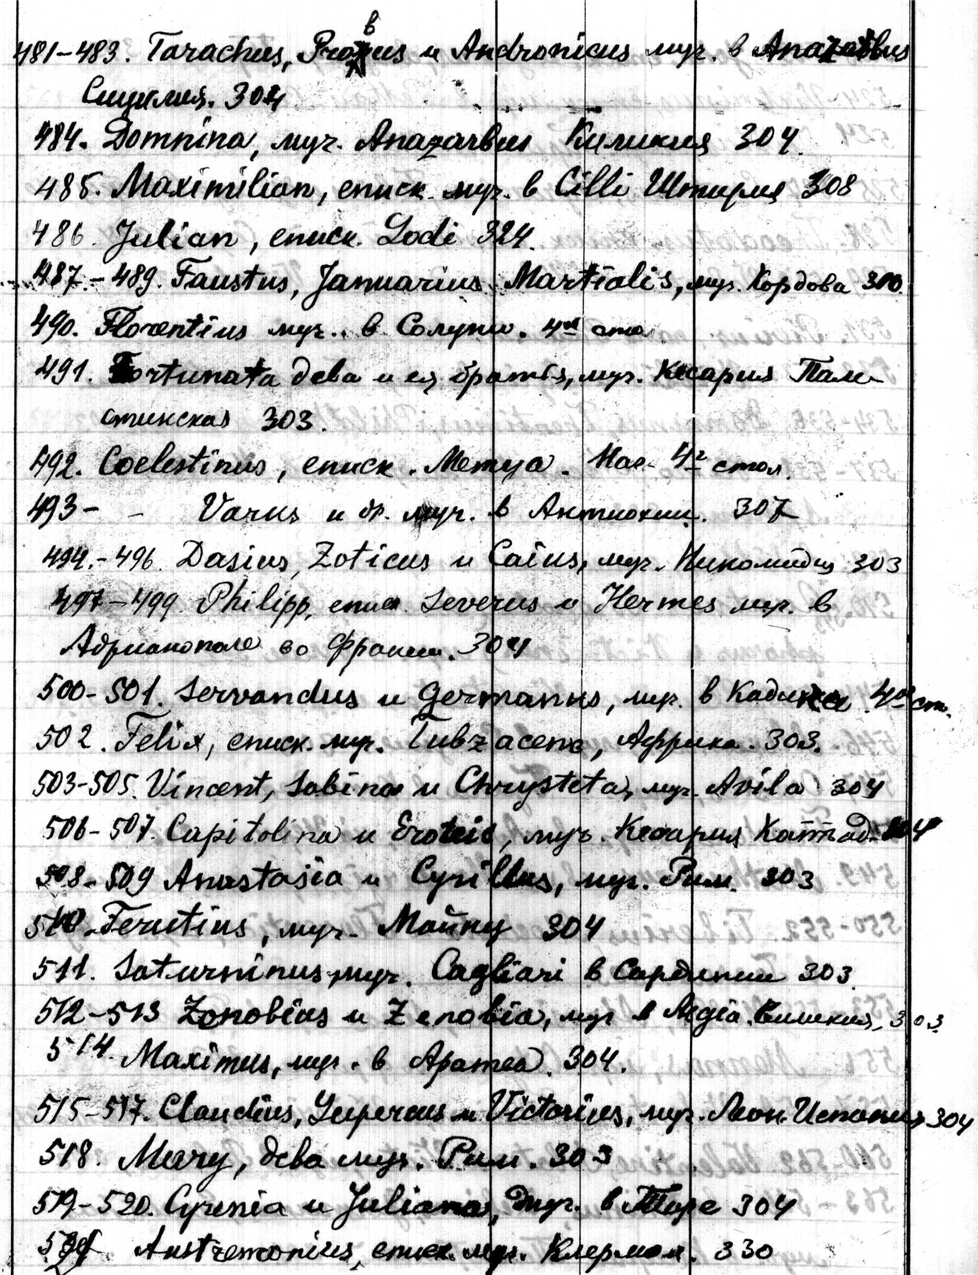 481-483. Tarachus, Probus и Andronicus муч. в Anazarbus
Сицилия. 304
484. Domnina, муч. Anazarbus Киликия 304
485. Maximilian, еписк. муч. в Cilli Штирия 308
486. Julian, еписк. Lodi 324.
487.-489. Faustus, Januarius Martialis, муч. Кордова 300.
490. Florentius муч. в Солуни.
491. Fortunata дева и ея братья, муч. Кесария Пале
стинская 303.
492. Coelestinus, еписк. Метца. Нач. 4г стол.
493- - Varus и др. муч. в Антиохии. 307
494.-496. Dasius, Zoticus и Caius, муч. Никомидия 303
497-499 Philipp, епис. Severus и Hermes муч. в
Адрианополе во Фракии. 304
500-501. Servandus и Germanus, муч. в Кадикса 4го ст.
502. Felix, еписк. муч. Tubzacene, Африка. 303.
503-505. Vincent, Sabina и Chrysteta, муч. Avila 304
506-507. Capitolina и Eroteis, муч. Кесария Каппад. 304
508-509 Anastasia и Cyrillus, муч. Рим. 303
510. Ferutius, муч. Майнц 304
511. Saturninus муч. Cagliari в Сардинии 303.
512-513 Zenobius и Zenobia, муч в Aegia. Киликия, 303
514 Maximus, муч. в Apamea. 304.
515-517. Claudius, Lupercus и Victorius, муч. Леон. Испания 304
518. Mary, дева муч. Рим. 303
519-520. Cyrenia и Juliana, муч. в Тарсе 304
Austremonius, еписк. муч. Клермон. 330